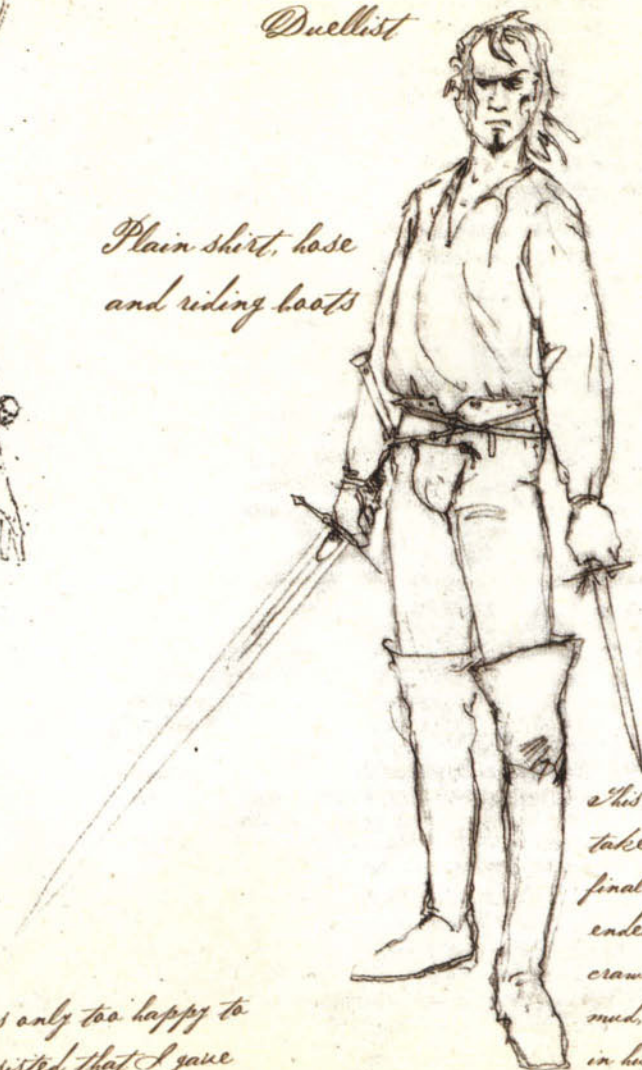 Duellist
Plain shirt, hose
and riding boots
This
take
final
ende
craw
mud,
in hu
s only too happy to
sisted that I gave